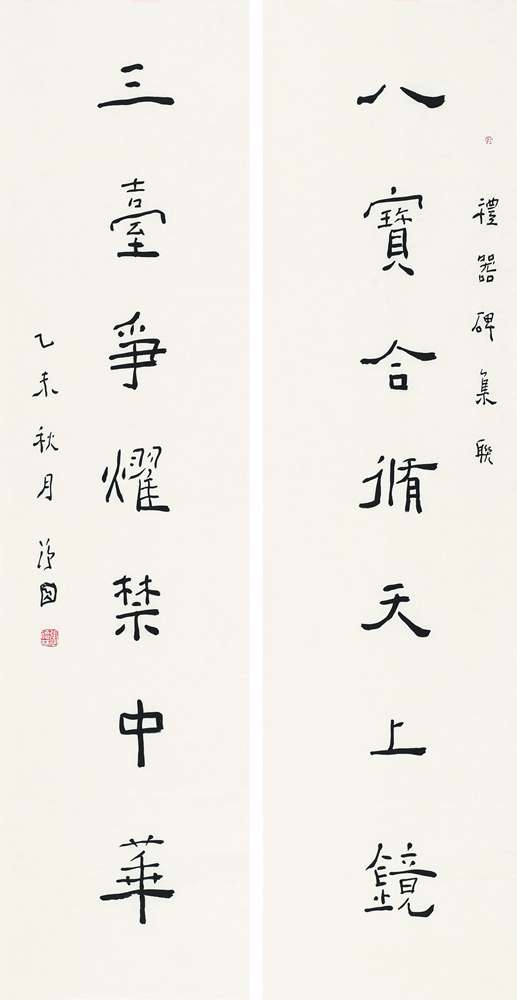 禮器碑集聯
八寶合循天上鏡
三臺爭燿禁中華
乙未秋月